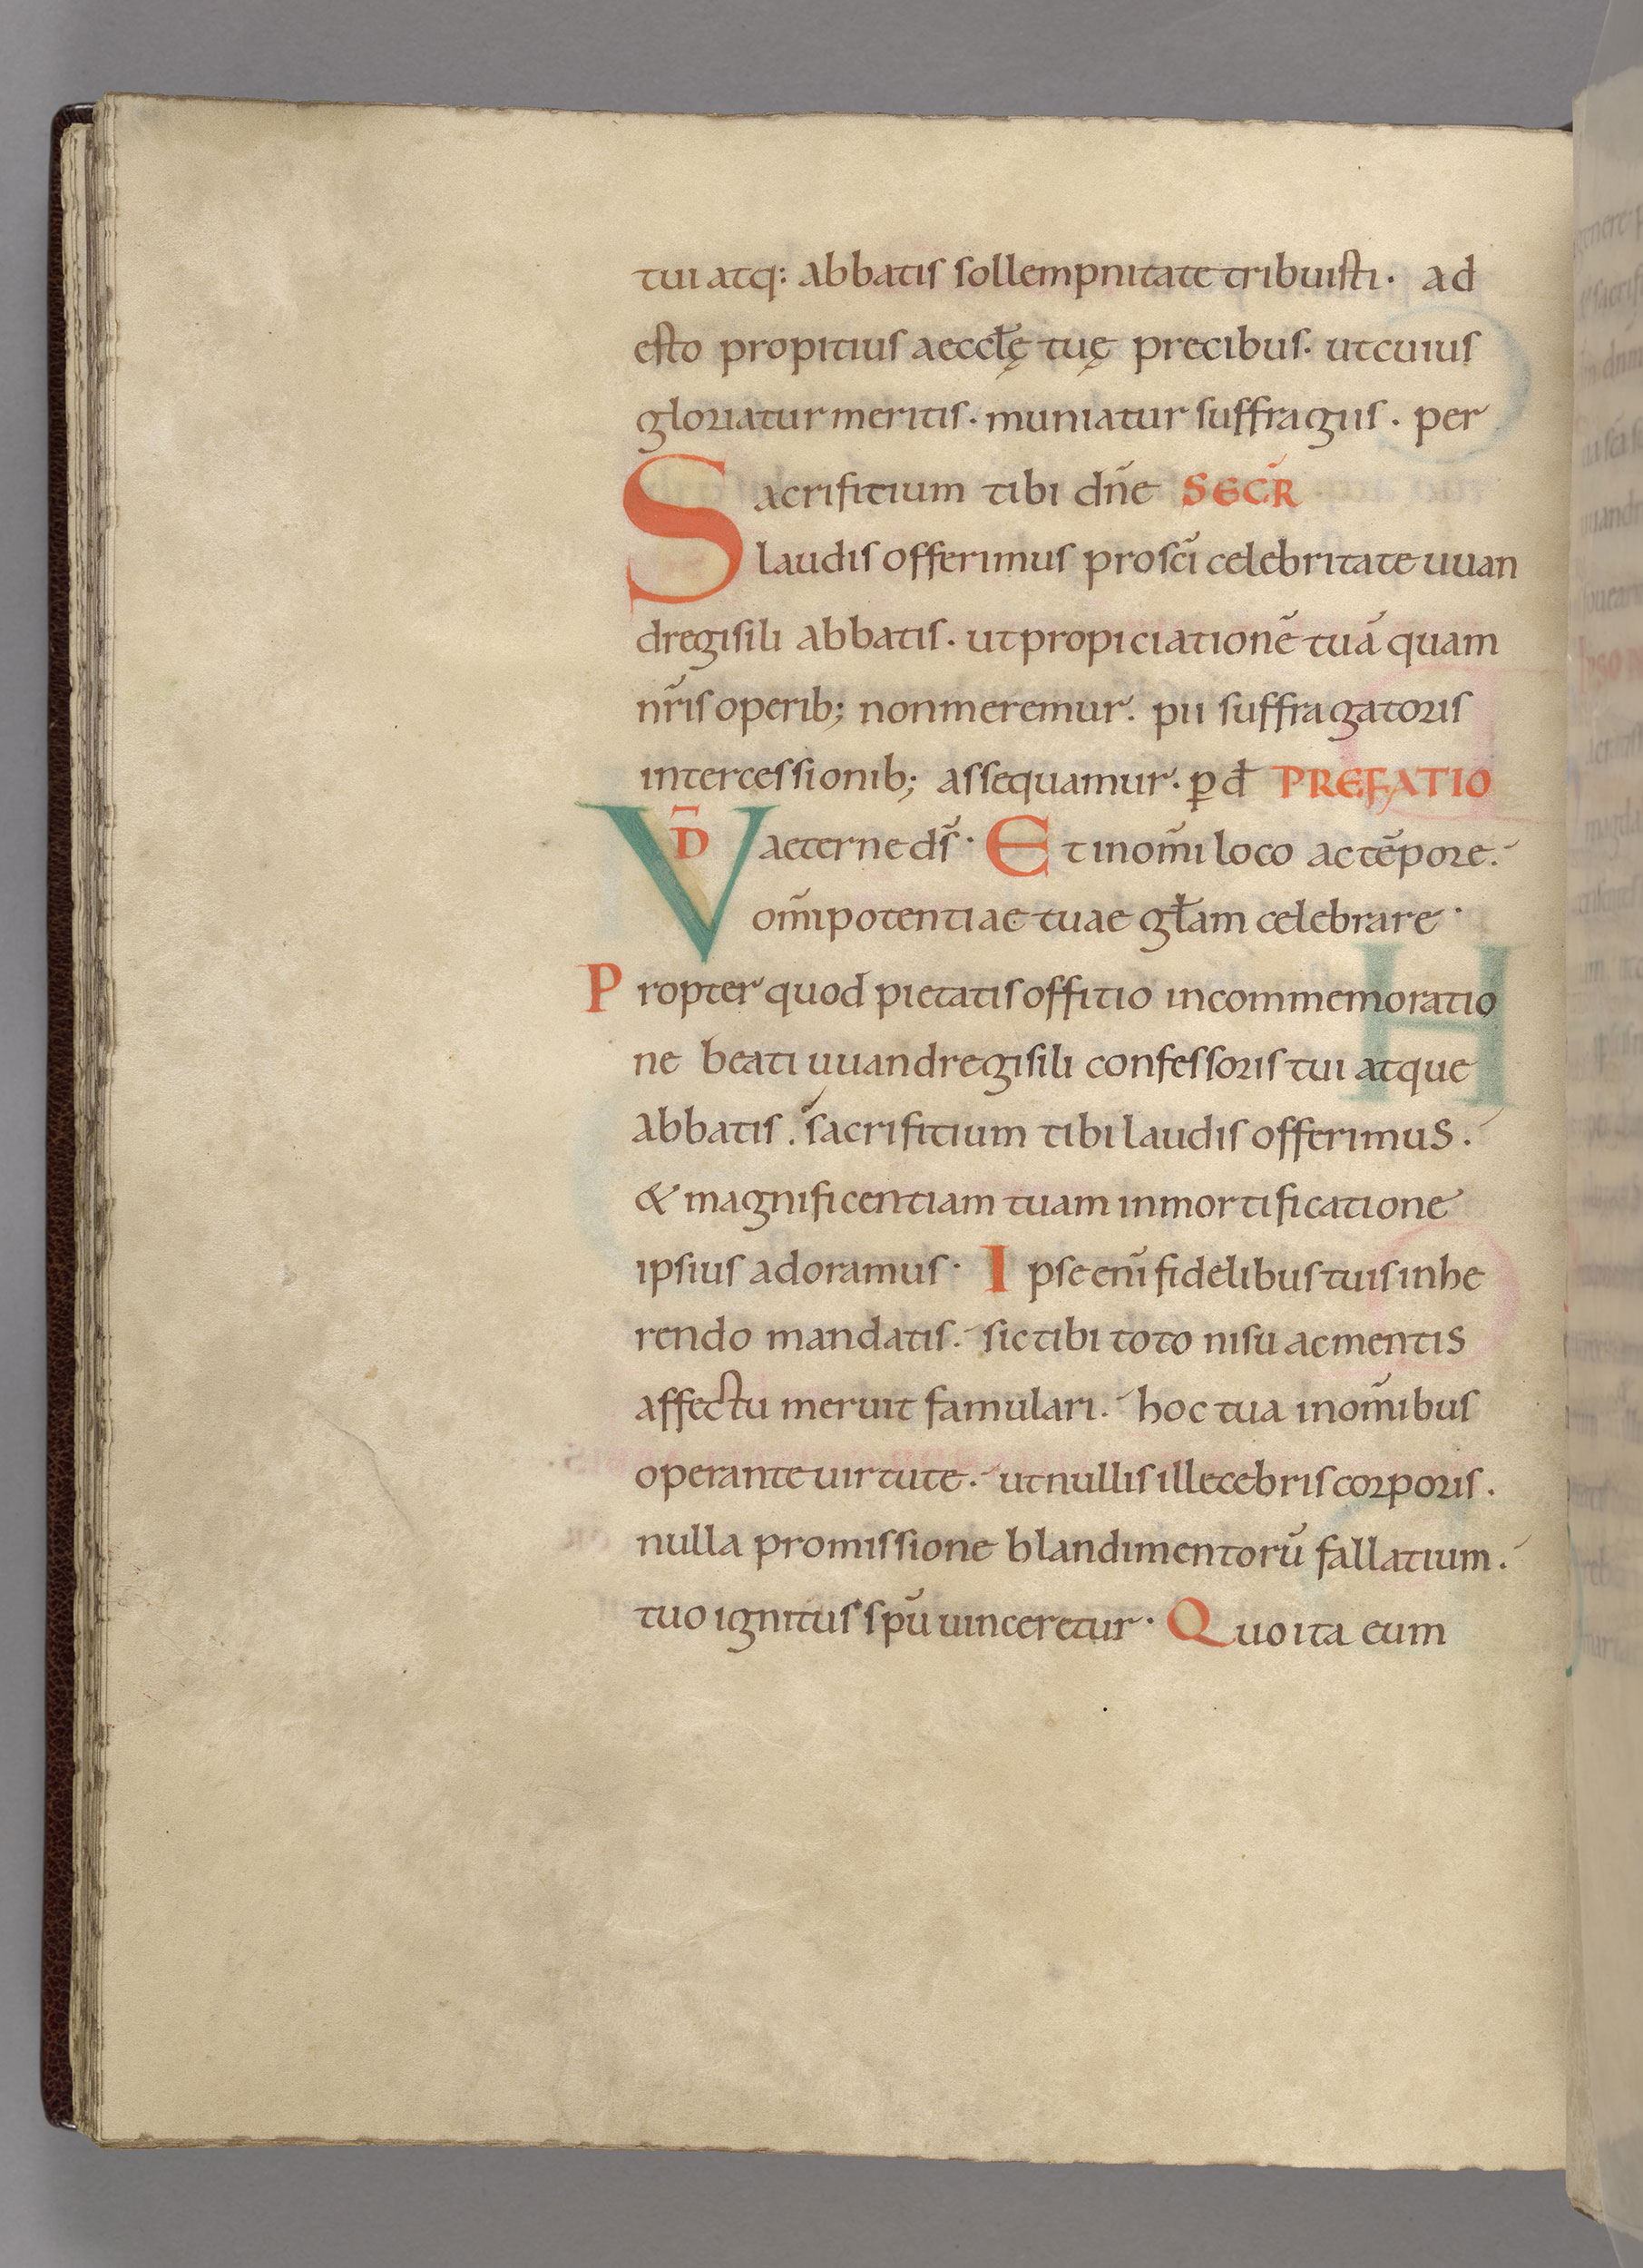 tui atq: abbatis sollempnitate tribuisti · ad
esto propitius aeccłę tuę precibus · ut cuius
gloriatur meritis · muniatur suffragiis · per
Sacrifitium tibi dn̄e SECR̄
laudis offerimus pro sc̄i celebritate uuan
dregisili abbatis · ut propiciationē tuā quam
nr̄is operib; non meremur · pii suffragatoris
intercessionib; assequamur · ꝑ đ PREFATIO
VD̄ aeterne ds̄ · Et in om̄i loco ac tēpore ·
om̄ipotentiae tuae gl̄am celebrare ·
Propter quod pietatis offitio in commemoratio
ne beati uuandregisili confessoris tui atque
abbatis · sacrifitium tibi laudis offerimus ·
& magnificentiam tuam in mortificatione
ipsius adoramus · Ipse eni̅ fidelibus tuis inhe
rendo mandatis · sic tibi toto nisu ac mentis
affectu meruit famulari · hoc tua in om̄ibus
operante uirtute · ut nullis illecebris corporis ·
nulla promissione blandimentorū fallatium ·
tuo ignitus spū uinceretur · Quo ita eum